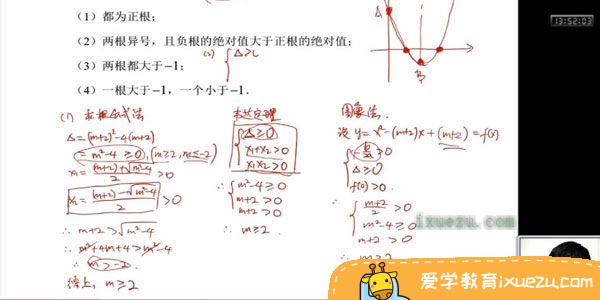 13:52:03
(1) 都为正根;
(2) 两根异号,且负根的绝对值大于正根的绝对值;
(3) 两根都大于-1;
(4) 一根大于-1,一个小于-1.
A
B
(2) { Δ>
(1) 求根公式法
Δ=(m+2)²-4(m+2)
=m²-4≥0, (m≥2, m≤-2)
x₁=((m+2)+√(m²-4))/2>0
x₂=((m+2)-√(m²-4))/2>0
∴ m+2>√(m²-4)
∴ m²+4m+4>m²-4
∴ m>-2
综上, m≥2
韦达定理
{ Δ≥0
x₁+x₂>0
x₁x₂>0
∴ { m²-4≥0
m+2>0
m+2>0
∴ m≥2.
图象法.
设 y=x²-(m+2)x+(m+2)=f(x)
>0
Δ≥0
f(0)>0.
∴ { (m+2)/2>0
m²-4≥0
m+2>0
∴ m≥2
ixuezu.com
爱学教育ixuezu.com